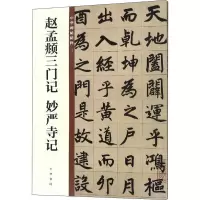 赵孟頫三门记 妙严寺记
天地闔闢運乎鴻樞
而乾坤為之戶日月
出入經乎黃道而卯
酉為之門是故建設
中华书局